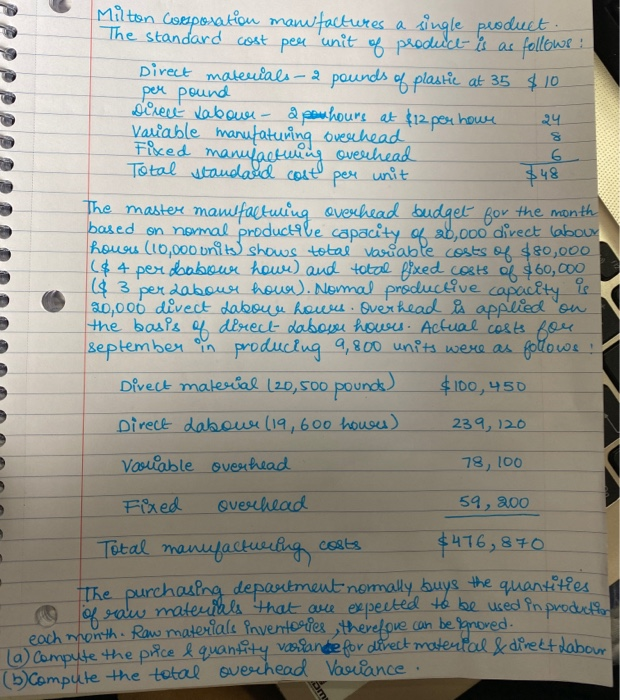 Milton Corporation manufactures a single product.
The standard cost per unit of product is as follows :
Direct materials – 2 pounds of plastic at 35 $ 10
per pound
Direct labour – 2 hours at $12 per hour 24
Variable manufaturing overhead 8
Fixed manufacturing overhead 6
Total standard cost per unit $48
The master manufacturing overhead budget for the month
based on normal productive capacity of 20,000 direct labour
hours (10,000 units) shows total variable costs of $80,000
($ 4 per labour hour) and total fixed costs of $60,000
($ 3 per labour hour). Normal productive capacity is
20,000 direct labour hours. Overhead is applied on
the basis of direct labour hours. Actual costs for
september in producing 9,800 units were as follows :
Direct material (20,500 pounds) $100,450
Direct labour (19,600 hours) 239,120
Variable overhead 78,100
Fixed overhead 59,200
Total manufacturing costs $476,870
The purchasing department normally buys the quantities
of raw materials that are expected to be used in production
each month. Raw materials inventories, therefore can be ignored.
(a) Compute the price & quantity variance for direct material & direct labour
(b) Compute the total overhead Variance .